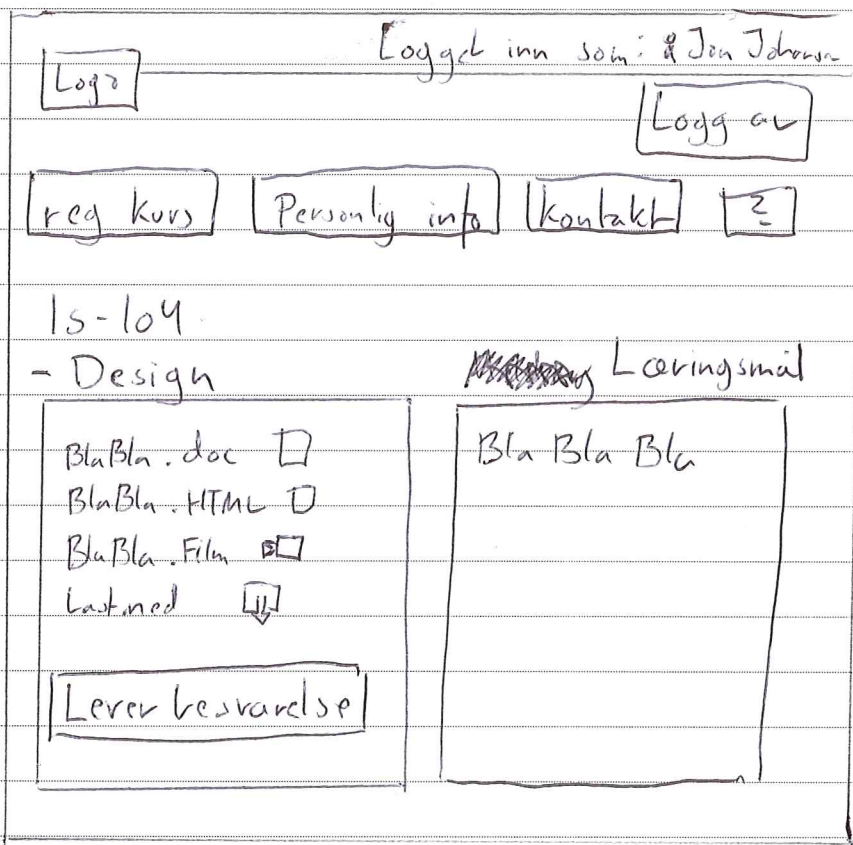 Logget inn som: Jon Johansn
Logo
Logg av
reg kurs Personlig info kontakt ?
Is-104
- Design
Læringsmål
BlaBla.doc
BlaBla.HTML
BlaBla.Film
Last ned
Lever besvarelse
Bla Bla Bla